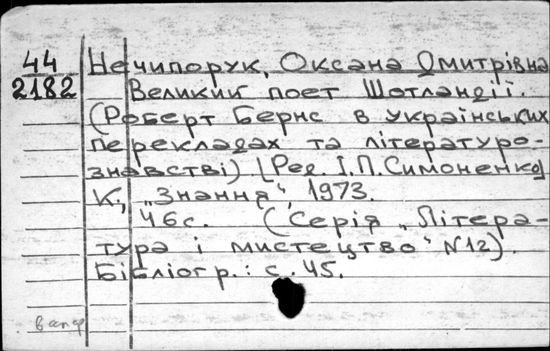 44
2182
Нечипорук, Оксана Дмитрівна
Великий поет Шотландії.
(Роберт Бернс в українських
перекладах та літературо-
знавстві) [Ред. І.П.Симоненко]
К., „Знання", 1973.
46с. (Серія „Літера-
тура і мистецтво" N12).
Бібліогр.: с. 45.